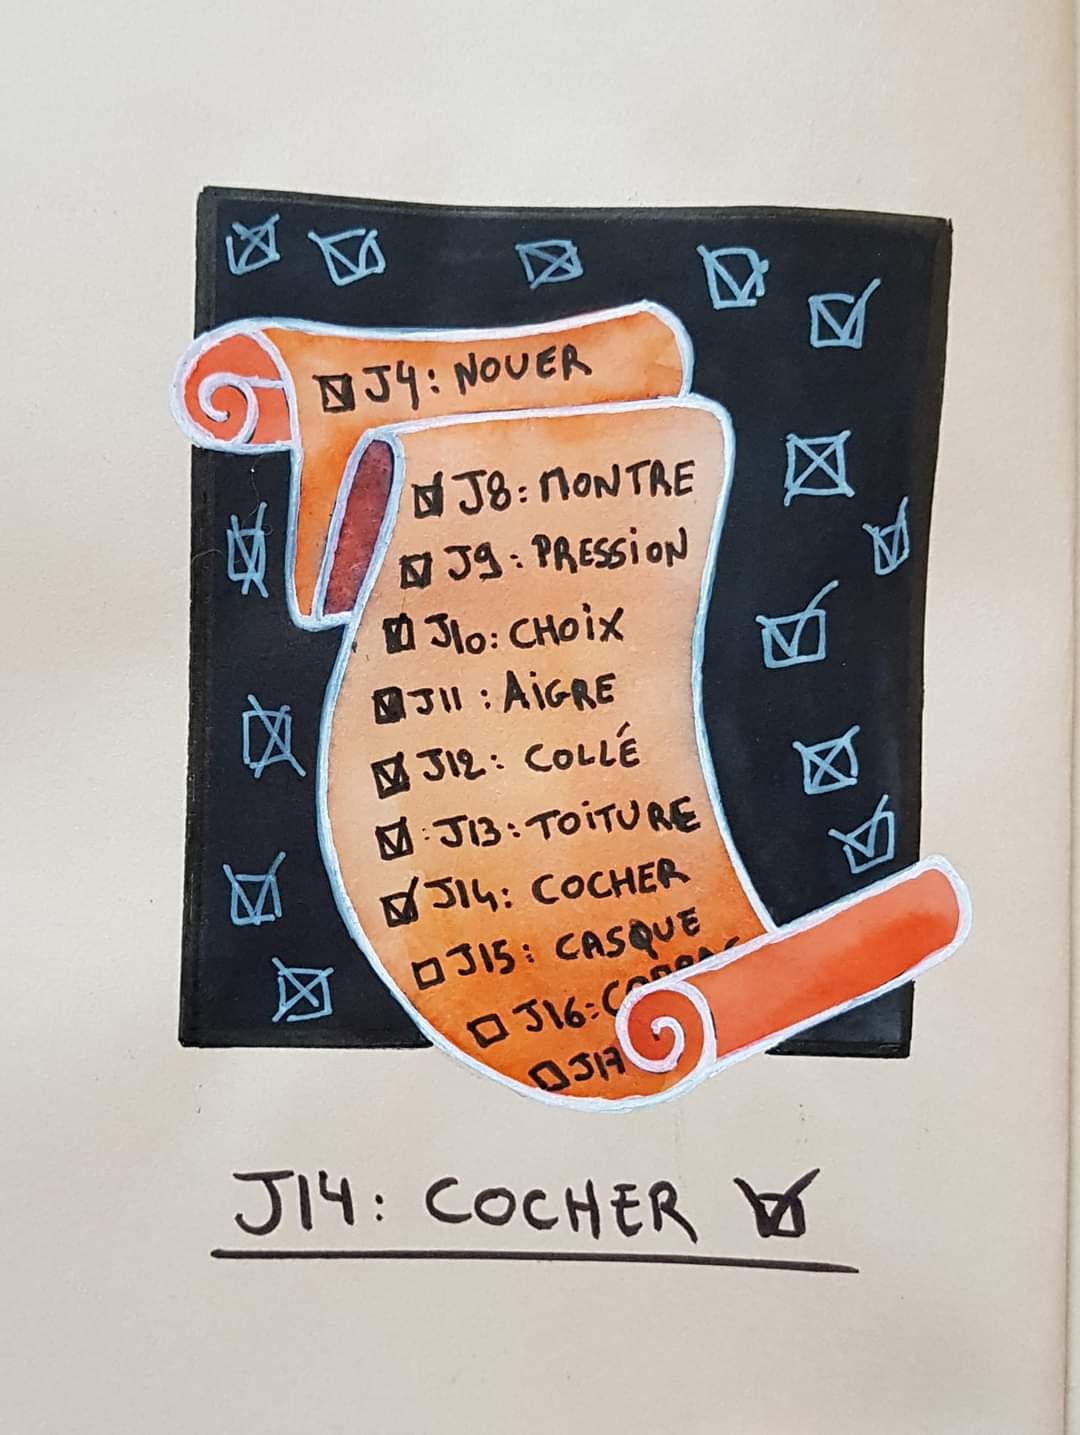 J4: NOUER
J8: MONTRE
J9: PRESSION
J10: CHOIX
J11: AIGRE
J12: COLLÉ
J13: TOITURE
J14: COCHER
J15: CASQUE
J16:
J17
J14: COCHER